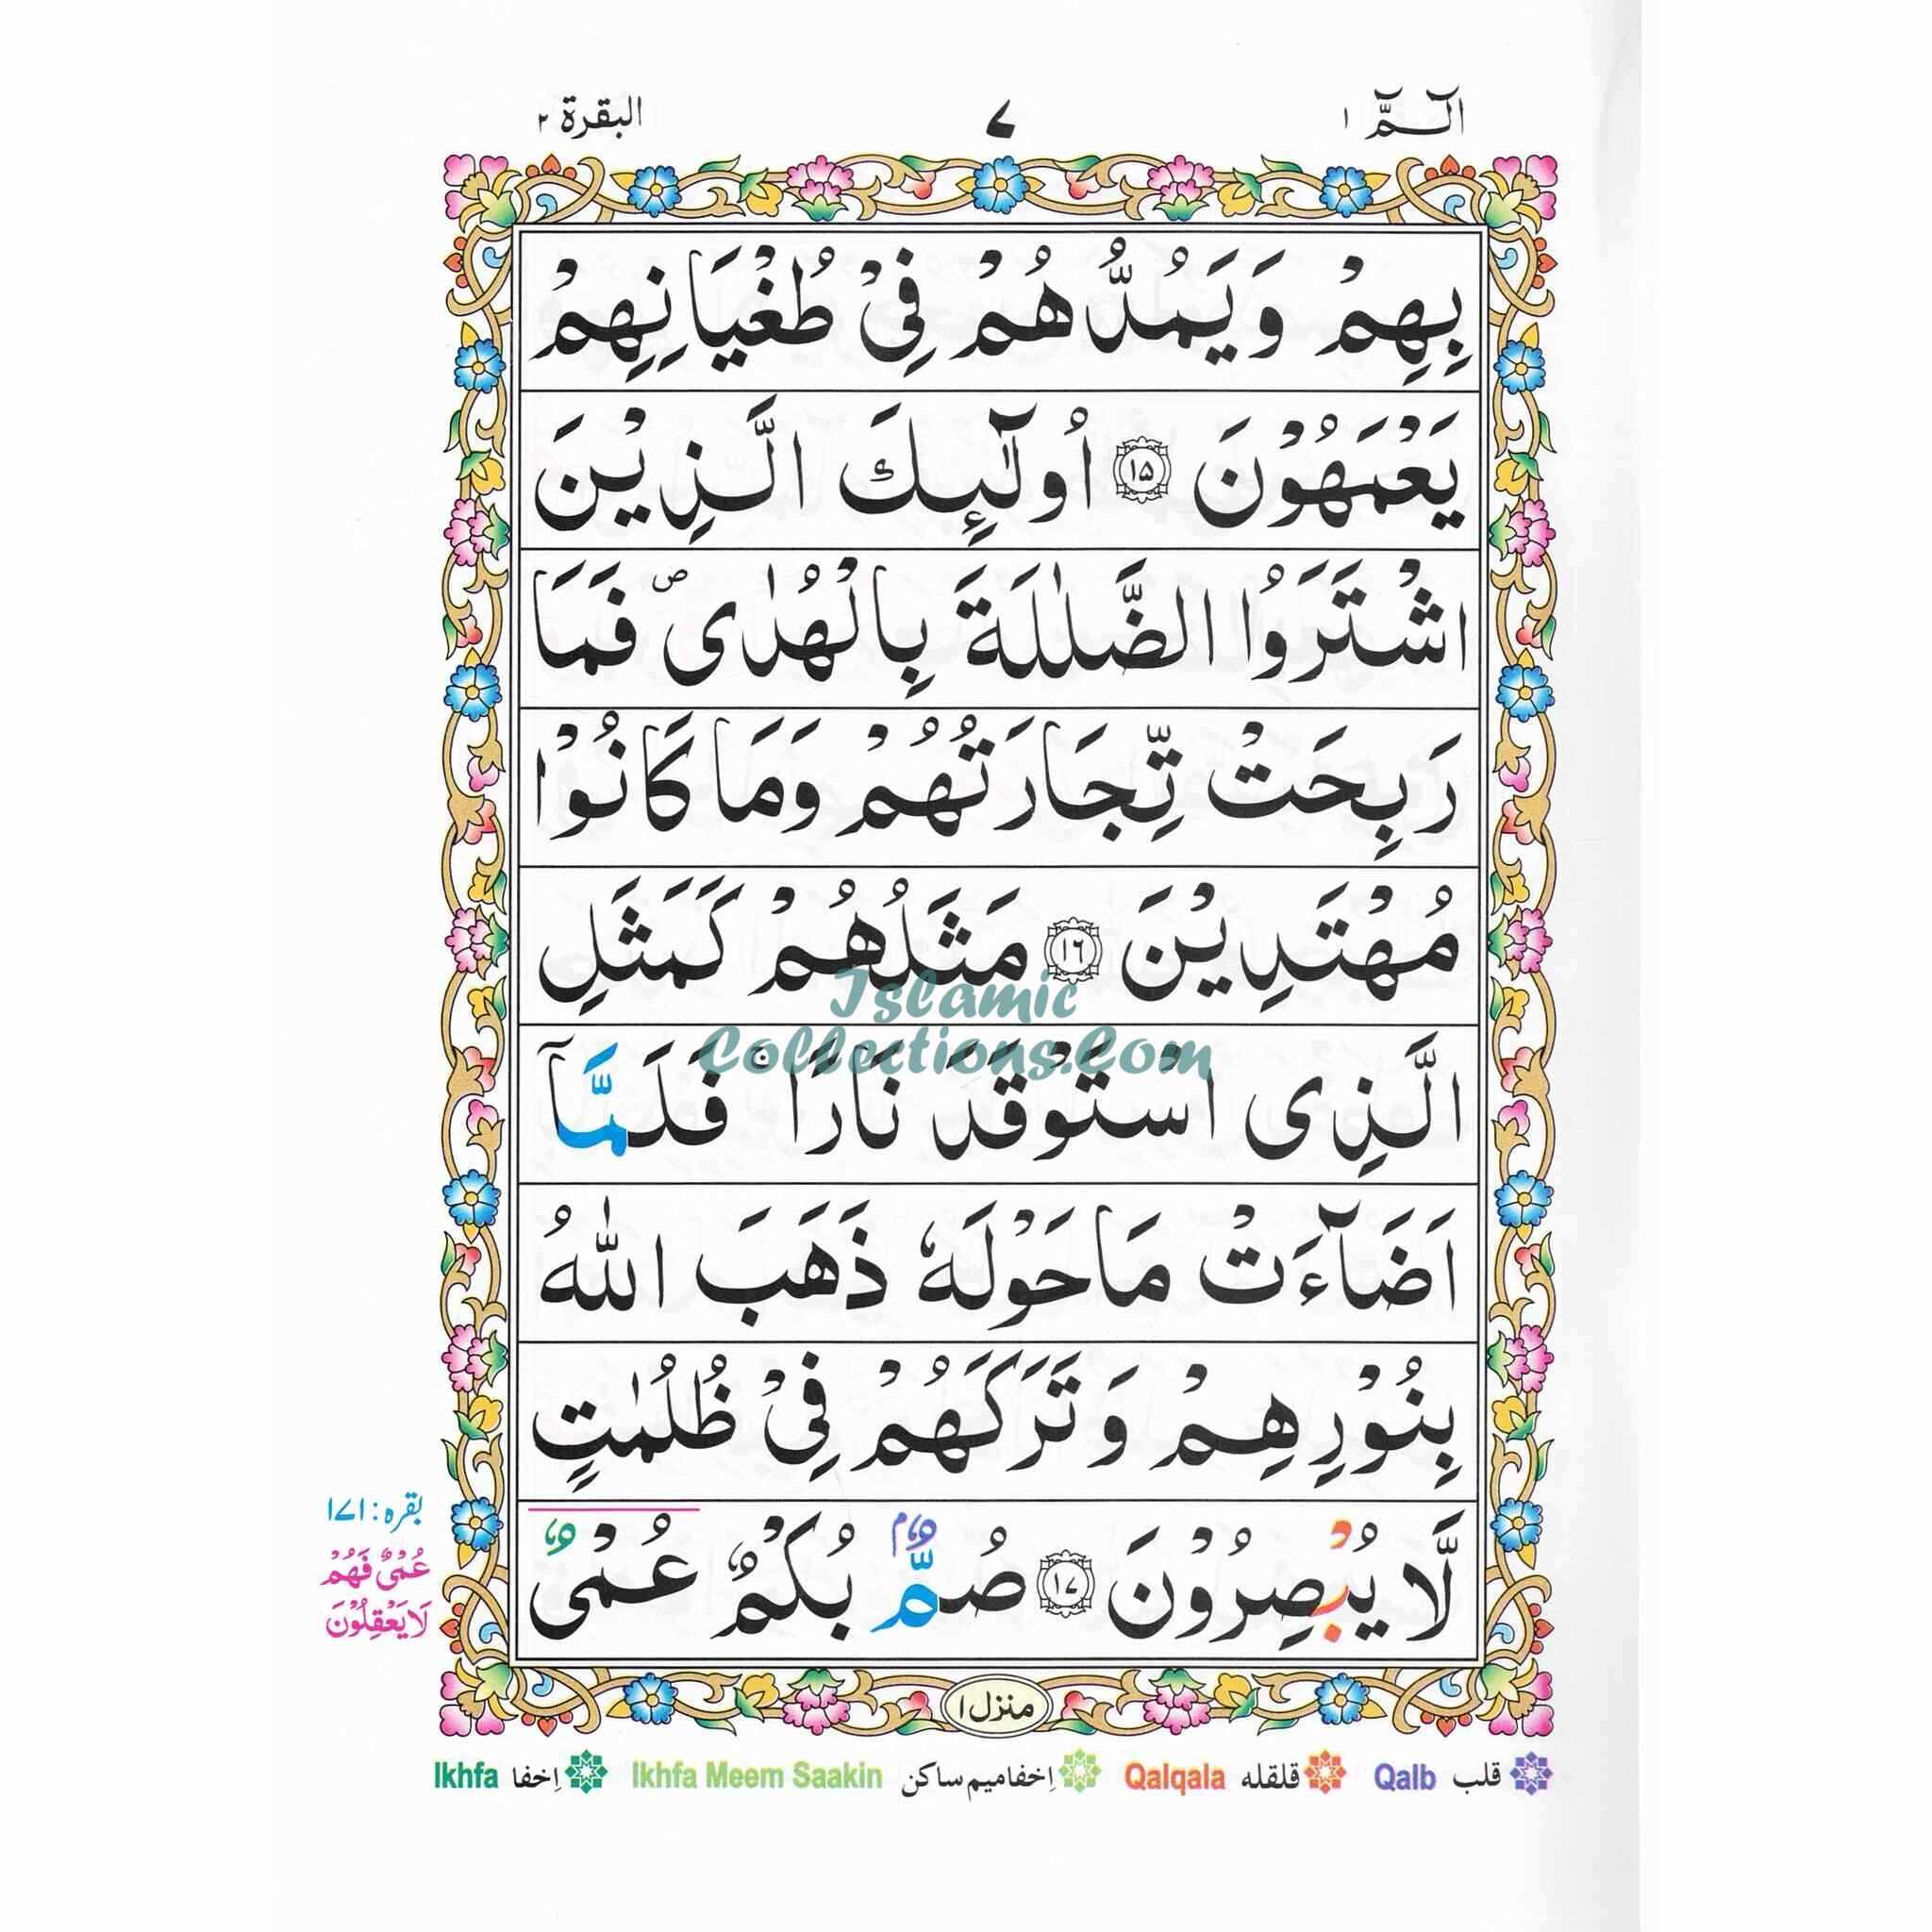 الٓـمّٓ ١ ٧ البقرة ٢
بِهِمْ وَيَمُدُّهُمْ فِيْ طُغْيَانِهِمْ
يَعْمَهُوْنَ ١٥ اُولٰٓئِكَ الَّذِيْنَ
اشْتَرَوُا الضَّلٰلَةَ بِالْهُدٰى ۪ فَمَا
رَبِحَتْ تِّجَارَتُهُمْ وَمَا كَانُوْا
مُهْتَدِيْنَ ١٦ مَثَلُهُمْ كَمَثَلِ
Islamic
Collections.Com
الَّذِى اسْتَوْقَدَ نَارًا ۚ فَلَمَّآ
اَضَآءَتْ مَا حَوْلَهٗ ذَهَبَ اللّٰهُ
بِنُوْرِهِمْ وَتَرَكَهُمْ فِيْ ظُلُمٰتٍ
لَّا يُبْصِرُوْنَ ١٧ صُمٌّۢ بُكْمٌ عُمْىٌ
بقره: ١٧١
عُمْىٌ فَهُمْ
لَا يَعْقِلُوْنَ
منزل ١
قلب Qalb قلقله Qalqala اِخفا میم ساکن Ikhfa Meem Saakin اِخفا Ikhfa